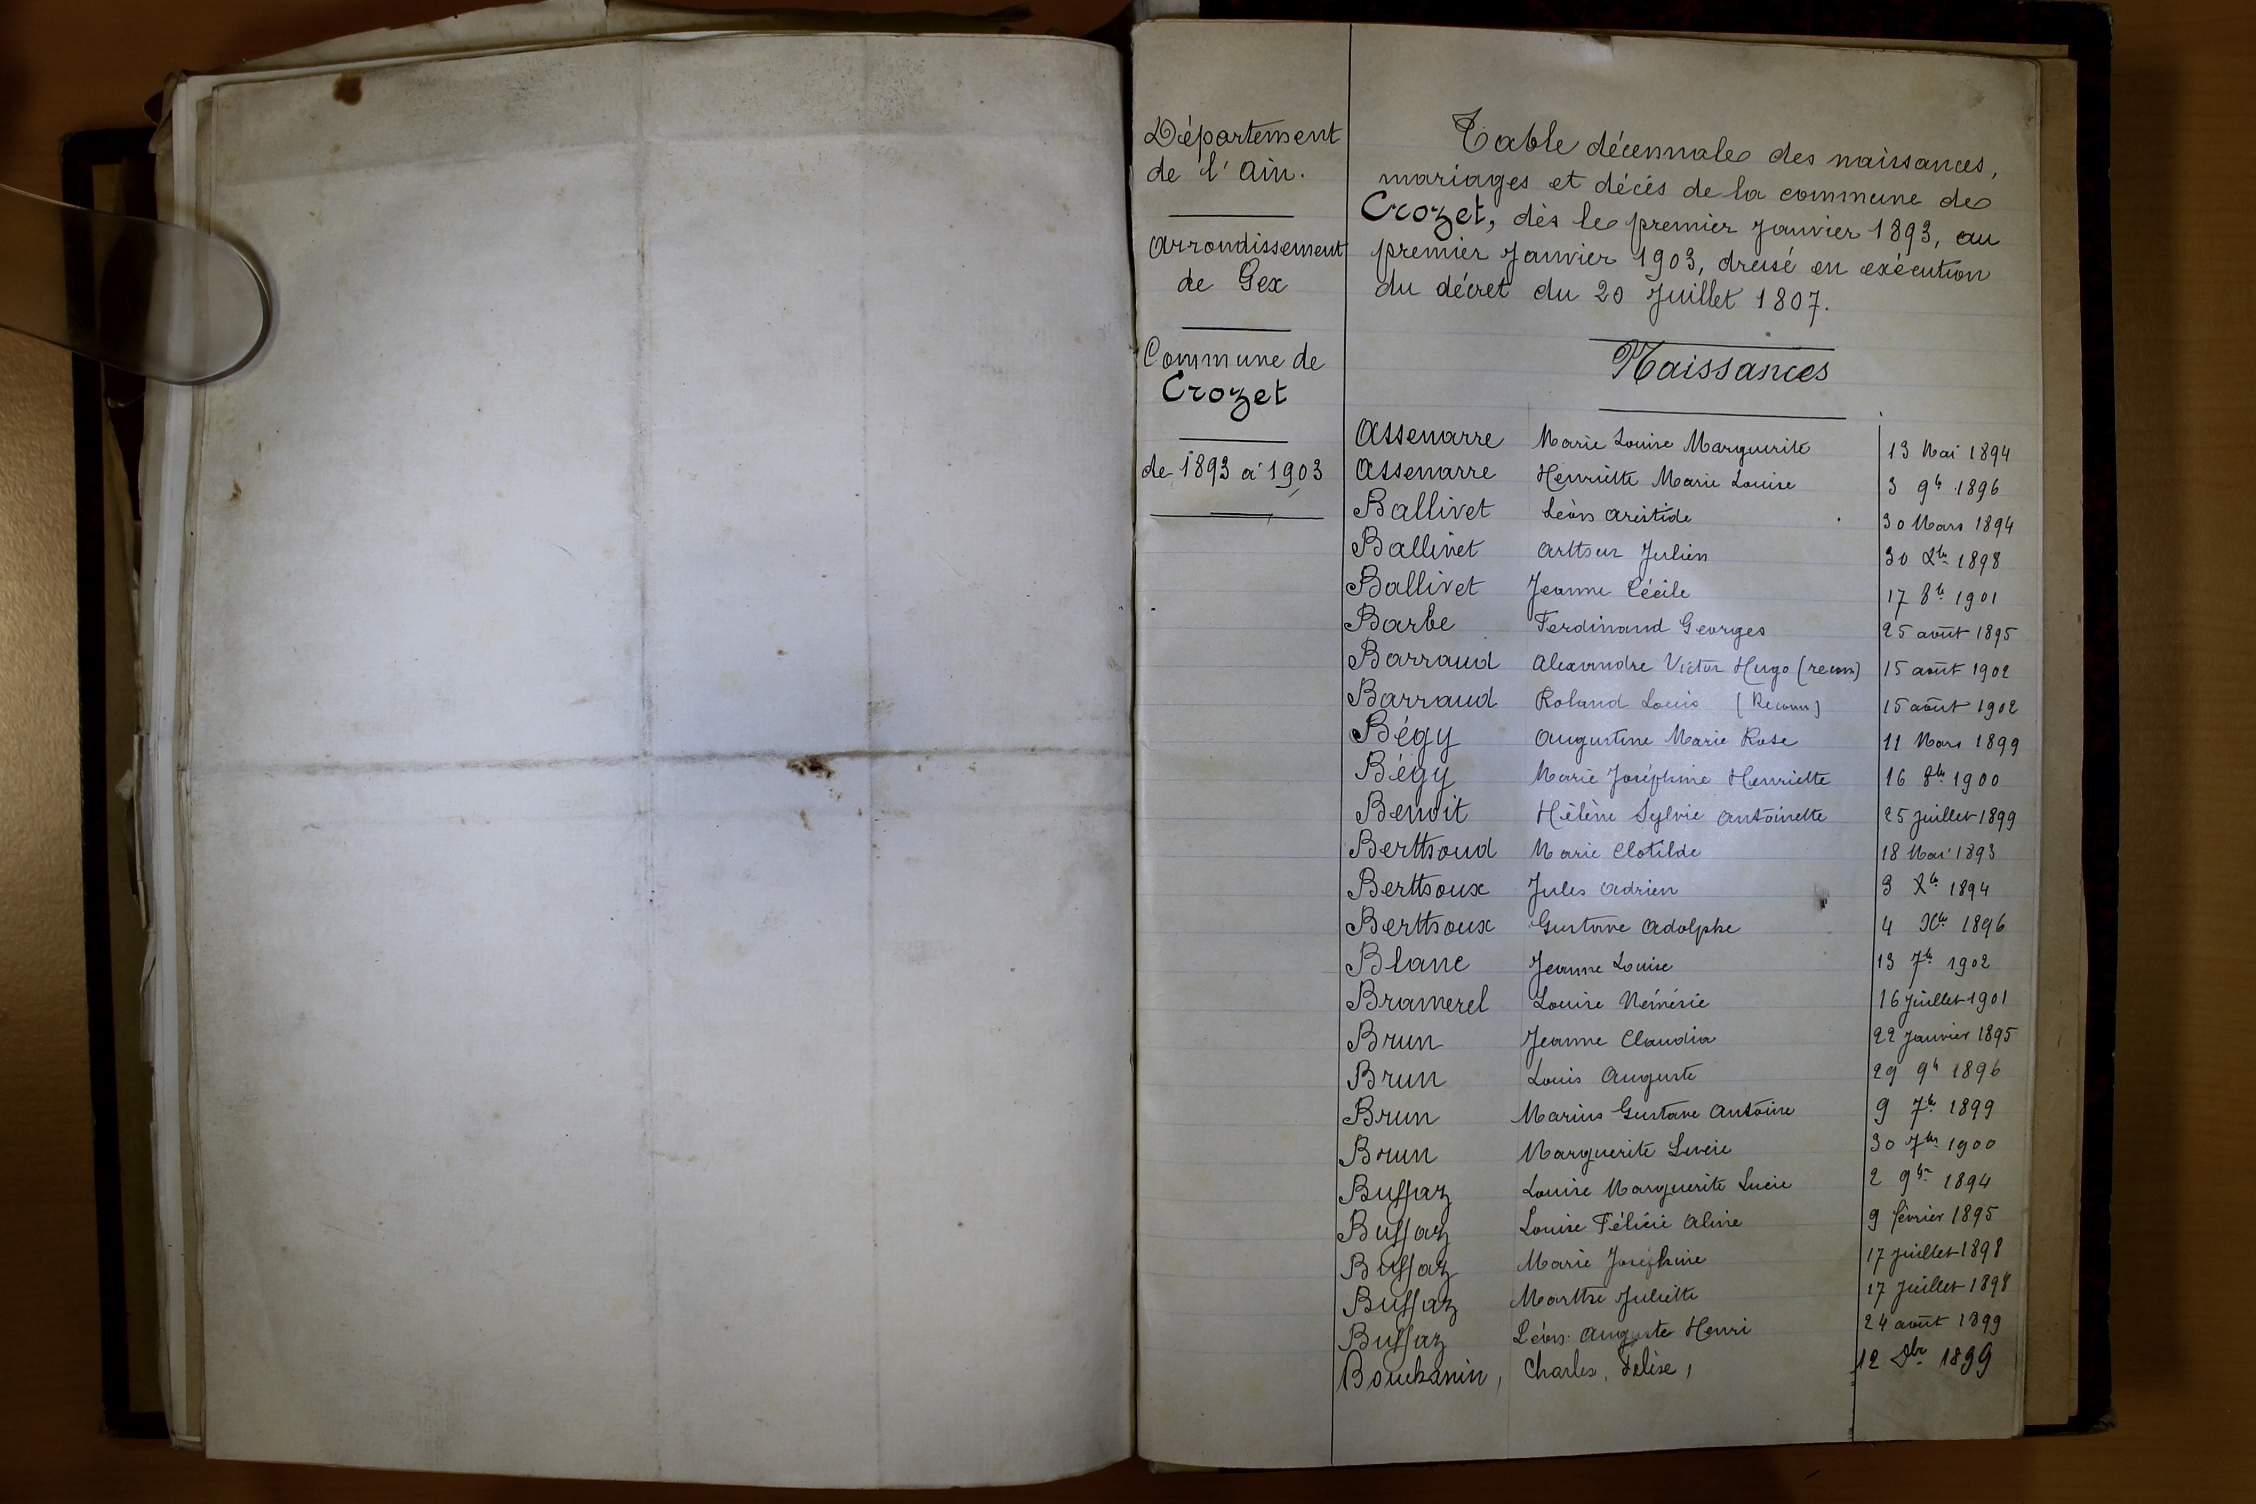 Département
de l'Ain.
Arrondissement
de Gex
Commune de
Crozet
de 1893 à 1903
Table décennale des naissances,
mariages et décès de la commune de
Crozet, dès le premier Janvier 1893, au
premier Janvier 1903, dressé en exécution
du décret du 20 Juillet 1807.
Naissances
Assenarre Marie Louise Marguerite 13 Mai 1894
Assenarre Henriette Marie Louise 3 9bre 1896
Ballivet Léon Aristide 30 Mars 1894
Ballivet Arthur Julien 30 Xbre 1898
Ballivet Jeanne Cécile 17 8bre 1901
Barbe Ferdinand Georges 25 août 1895
Barraud Alexandre Victor Hugo (recon) 15 août 1902
Barraud Roland Louis (Reconn) 15 août 1902
Bégy Augustine Marie Rose 11 Mars 1899
Bégy Marie Joséphine Henriette 16 8bre 1900
Benoit Hélène Sylvie Antoinette 25 Juillet 1899
Berthoud Marie Clotilde 18 Mai 1893
Berthoux Jules Adrien 3 Xbre 1894
Berthoux Gustave Adolphe 4 Xbre 1896
Blanc Jeanne Louise 13 7bre 1902
Bramerel Louise Némésie 16 Juillet 1901
Brun Jeanne Claudia 22 Janvier 1895
Brun Louis Auguste 29 9bre 1896
Brun Marius Gustave Antoine 9 7bre 1899
Brun Marguerite Lucie 30 7bre 1900
Buffaz Louise Marguerite Lucie 2 9bre 1894
Buffaz Louise Félicie Aline 9 février 1895
Buffaz Marie Joséphine 17 Juillet 1898
Buffaz Marthe Juliette 17 Juillet 1898
Buffaz Léon Auguste Henri 24 août 1899
Charles, Félix, 12 1899